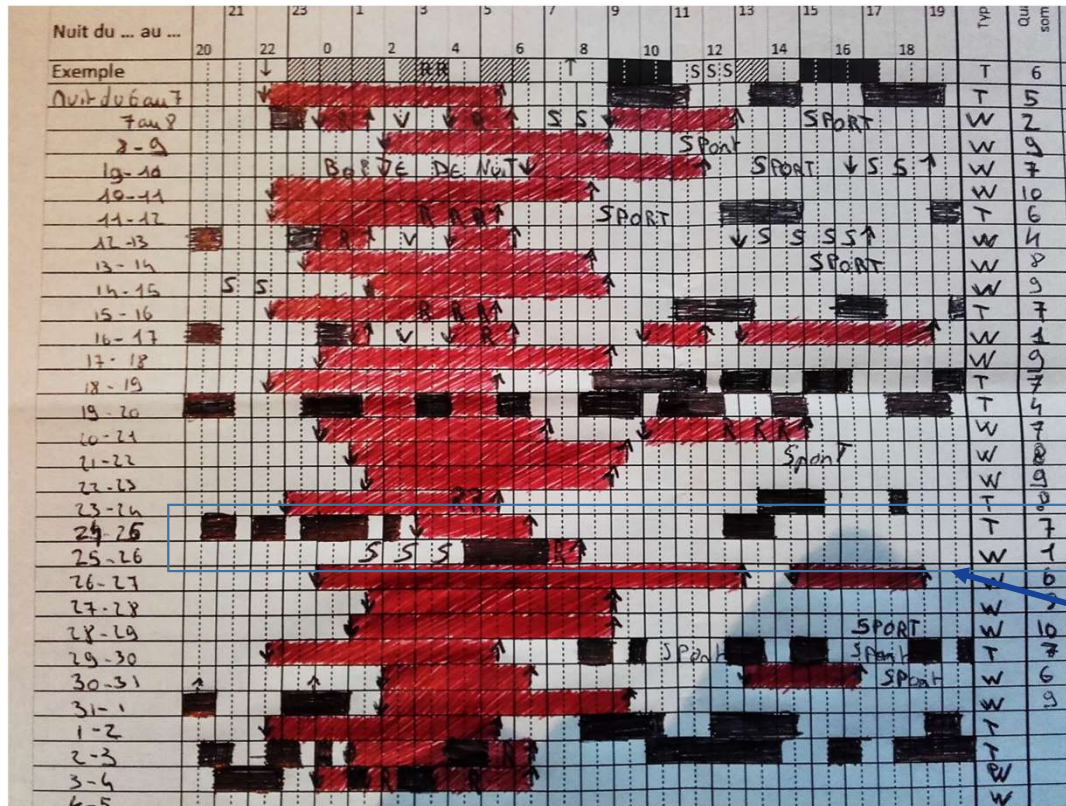 21 23 1 3 5 7 9 11 13 15 17 19 Typ Qu
Nuit du ... au ... som
20 22 0 2 4 6 8 10 12 14 16 18
Exemple ↓ RR ↑ S S S T 6
Nuit du 6 au 7 T 5
7 au 8 V S S SPORT W 2
8-9 Sport W 9
19-10 DE NUIT SPORT S S W 7
10-11 W 10
11-12 R R R SPORT T 6
12-13 R V S S S S W 4
13-14 SPORT W 8
14-15 S S W 9
15-16 R R R T 7
16-17 V R W 1
17-18 W 9
18-19 T 7
19-20 T 4
20-21 R R R W 7
21-22 Sport W 8
22-23 W 9
23-24 T 8
24-25 T 7
25-26 S S S R W 1
26-27 W 6
27-28 W 9
28-29 SPORT W 10
29-30 Sport Sport T 7
30-31 Sport W 6
31-1 W 9
1-2 T
2-3 R T
3-4 R R W
4-5 W